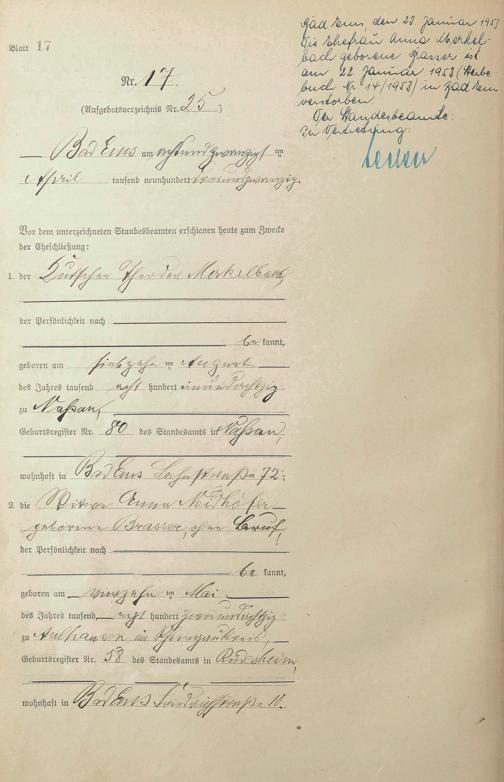 Blatt 17
Nr. 17.
(Aufgebotsverzeichnis Nr. 25)
Bad Ems am achtundzwanzigsten
April tausend neunhundert
Vor dem unterzeichneten Standesbeamten erschienen heute zum Zwecke
der Eheschließung:
1. der Kutscher Theodor Merkelbach,
der Persönlichkeit nach
be kannt,
geboren am siebzehnten August
des Jahres tausend acht hundert einundachtzig
zu Nassau,
Geburtsregister Nr. 80 des Standesamts in Nassau,
wohnhaft in Bad Ems Lahnstraße 72;
2. die Witwe Anna Neidhöfer
geborene Brasser, ohne Beruf,
der Persönlichkeit nach
be kannt,
geboren am vierzehnten Mai
des Jahres tausend acht hundert zweiundachtzig
zu Aulhausen im Rheingaukreis,
Geburtsregister Nr. 58 des Standesamts in Rüdesheim,
wohnhaft in Bad Ems Friedrichstraße 10.
Bad Ems, den 23. Januar 1953
Die Ehefrau Anna Merkel-
bach geborene Brasser ist
am 22. Januar 1953 (Sterbe-
buch Nr. 14/1953) in Bad Ems
verstorben
Der Standesbeamte:
In Vertretung: